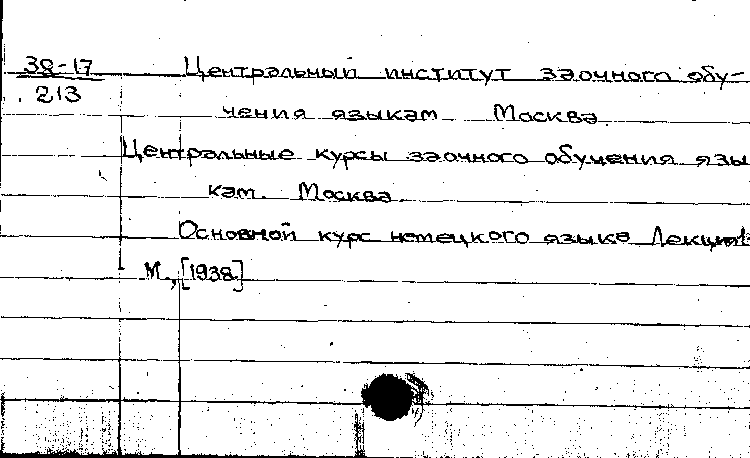 38-17 Центральный институт заочного обу-
213
чения языкам Москва.
Центральные курсы заочного обучения язы
кам. Москва.
Основной курс немецкого языка Лекция
М., [1938]